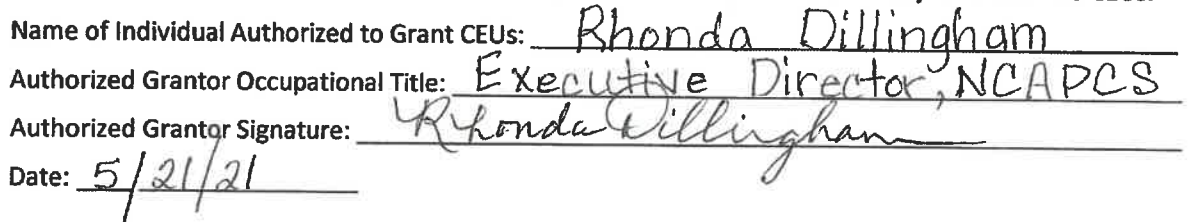 Name of Individual Authorized to Grant CEUs: Rhonda Dillingham
Authorized Grantor Occupational Title: Executive Director, NCAPCS
Authorized Grantor Signature: Rhonda Dillingham
Date: 5/21/21